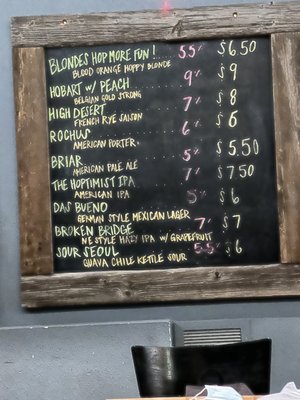 BLONDES HOP MORE FUN! . . . 5.5% $6.50
BLOOD ORANGE HOPPY BLONDE
HOBART W/ PEACH . . . 9% $9
BELGIAN GOLD STRONG
HIGH DESERT . . . 7% $8
FRENCH RYE SAISON
ROCHUS . . . 6% $6
AMERICAN PORTER
BRIAR . . . 5% $5.50
AMERICAN PALE ALE
THE HOPTIMIST IPA . . . 7% $7.50
AMERICAN IPA
DAS BUENO . . . 5% $6
GERMAN STYLE MEXICAN LAGER
BROKEN BRIDGE . . . 7% $7
NE STYLE HAZY IPA W/ GRAPEFRUIT
SOUR SEOUL . . . 5.5% $6
GUAVA CHILE KETTLE SOUR